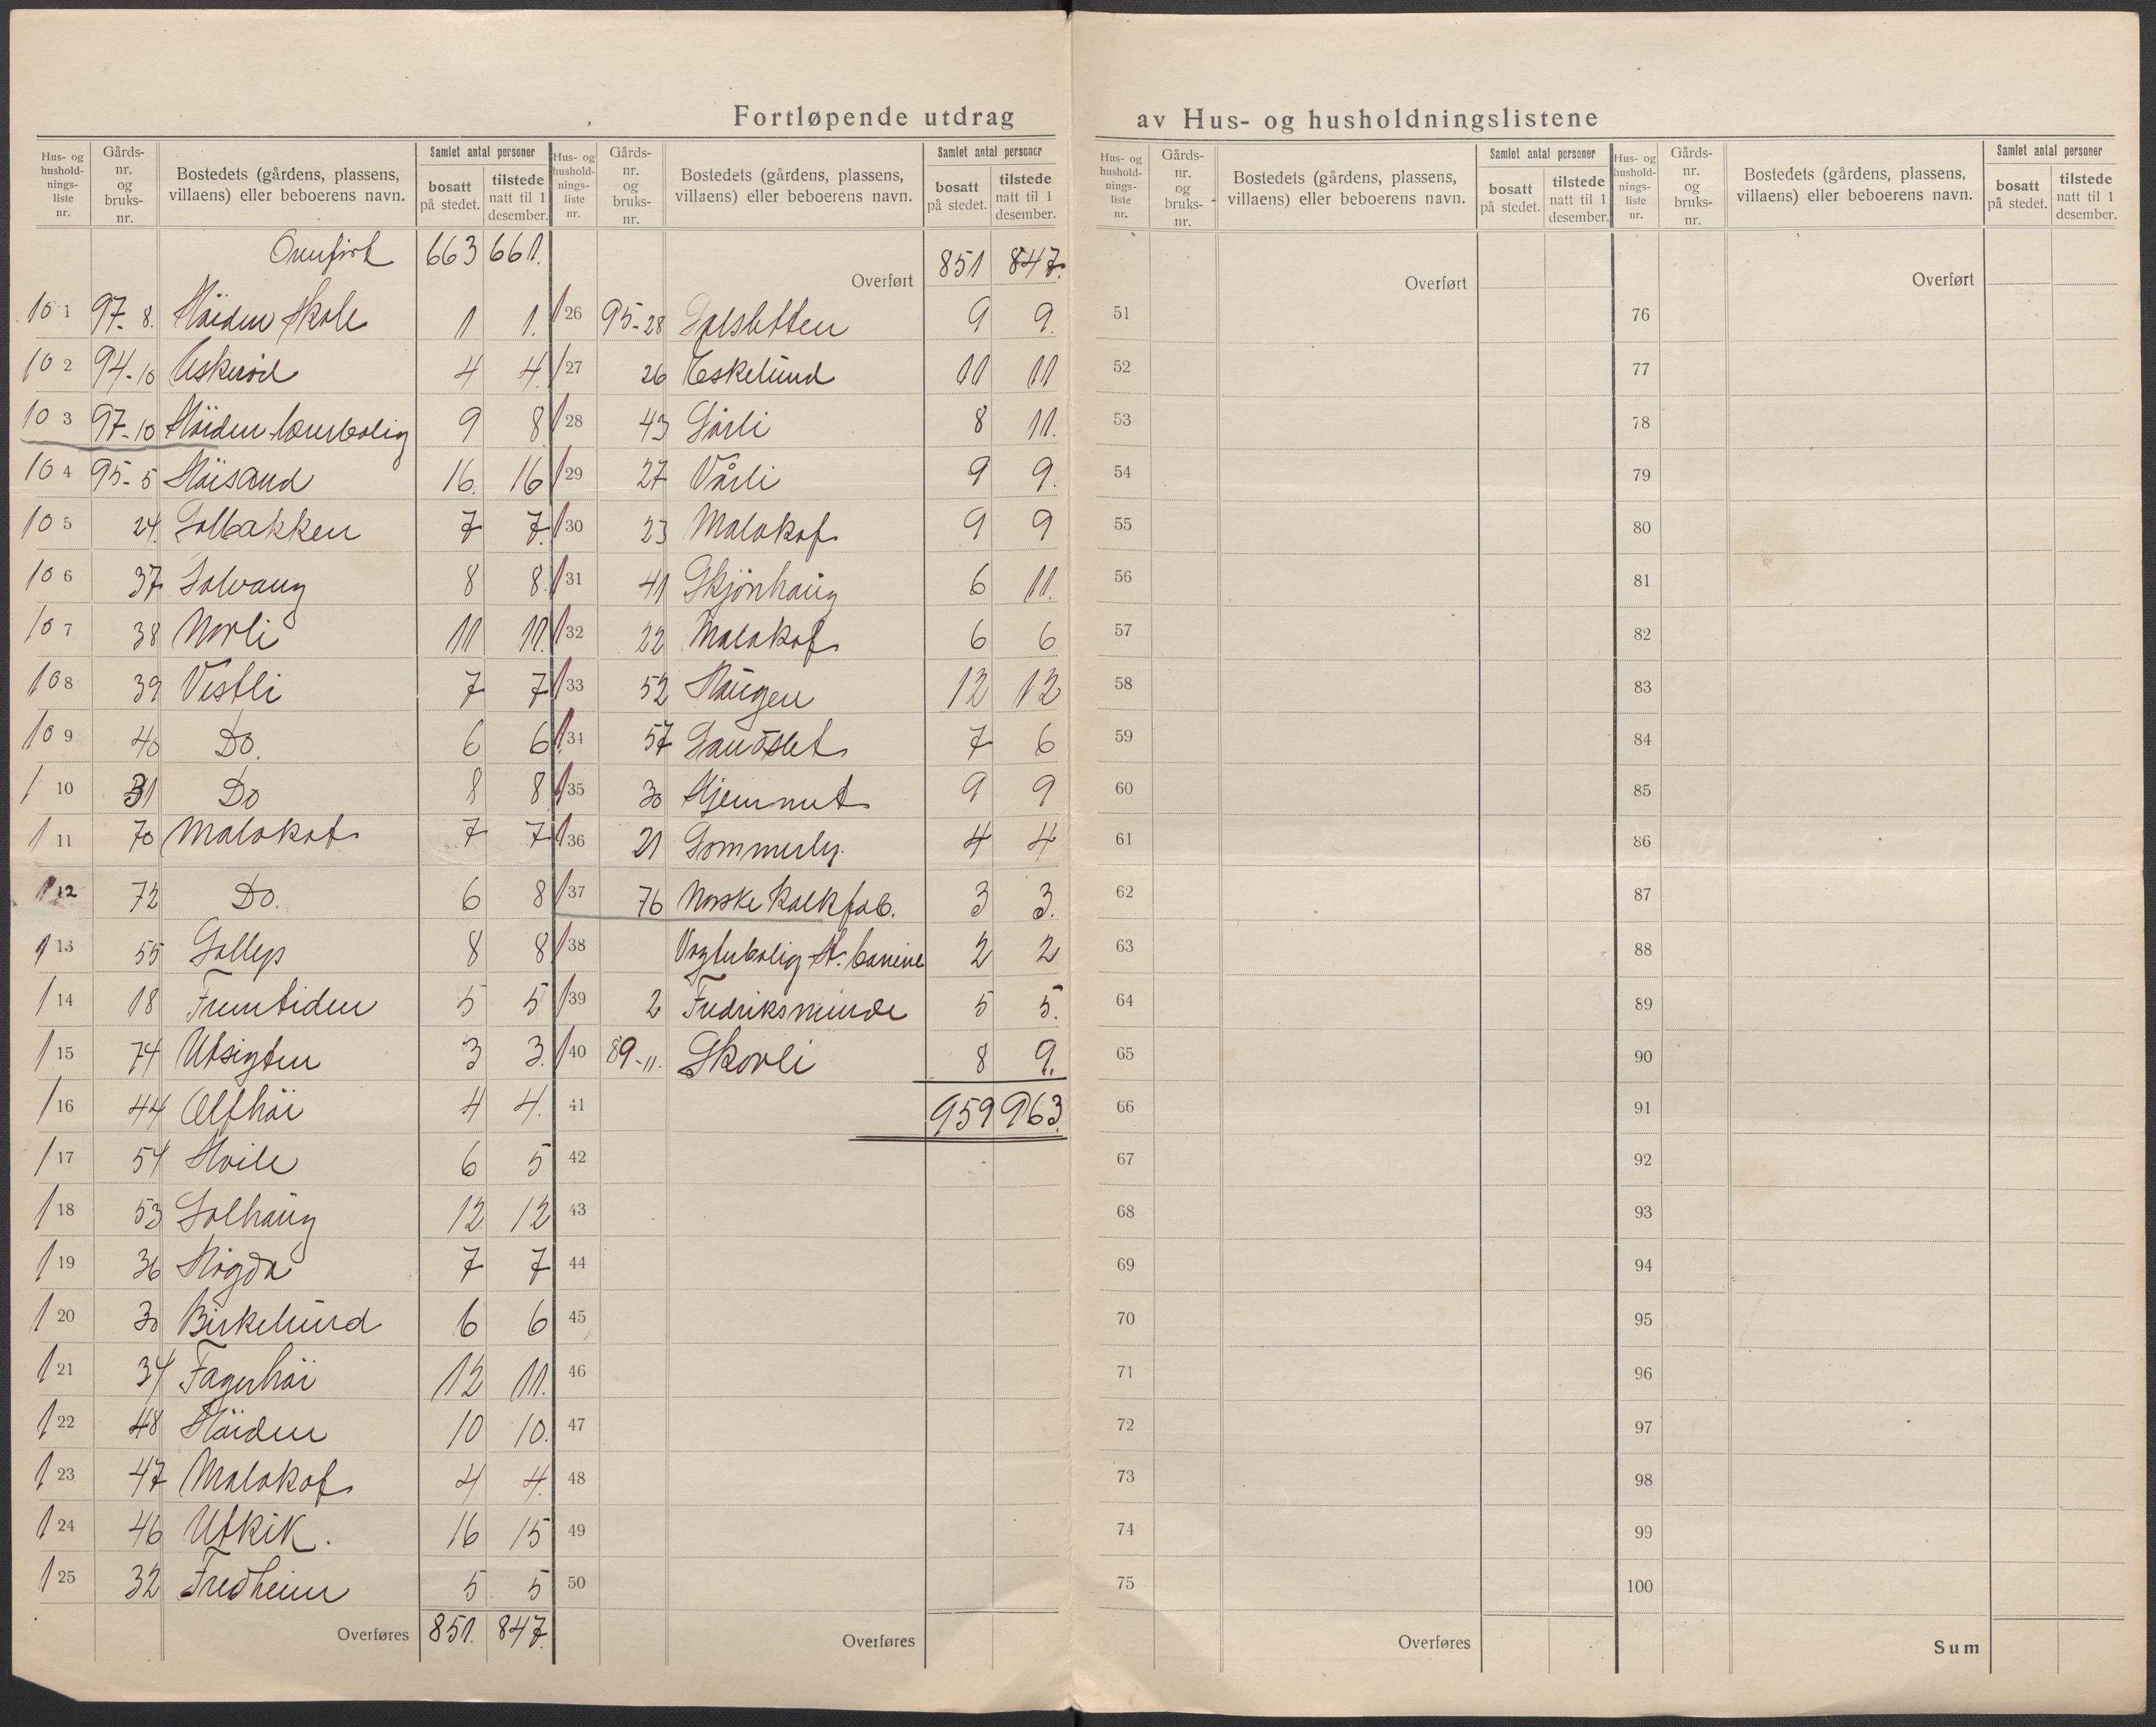 Fortløpende utdrag av Hus- og husholdningslistene
Hus- og hushold-nings-liste nr. | Gårds-nr. og bruks-nr. | Bostedets (gårdens, plassens, villaens) eller beboerens navn. | Samlet antal personer | bosatt på stedet. | tilstede natt til 1 desember.
Overført 663 661.
101 97-8. Høiden Skole 1 1.
102 94-10 Eskerød 4 4.
103 97-10 Høiden lærerbolig 9 8
104 95-5 Høisand 16. 16
105 24. Solbakken 7 7.
106 37 Solvang 8 8.
107 38 Norli 11 11.
108 39 Vestli 7 7
109 40 Do. 6 6
110 31 Do 8 8
111 70 Malakof 7 7
112 72 Do. 6 8
113 55 Solleys 8 8
114 18 Fremtiden 5 5
115 74 Utsigten 3 3.
116 44 Alfhøi 4 4.
117 54 Hvile 6 5
118 53 Solhaug 12 12
119 36 Høgda 7 7
120 30 Birkelund 6 6
121 34 Fagerhøi 12 11.
122 48 Høiden 10 10.
123 47 Malakof 4 4.
124 46 Utkik. 16 15
125 32 Fredheim 5 5
Overføres 851. 847.
Hus- og hushold-nings-liste nr. | Gårds-nr. og bruks-nr. | Bostedets (gårdens, plassens, villaens) eller beboerens navn. | Samlet antal personer | bosatt på stedet. | tilstede natt til 1 desember.
Overført 851 847.
126 95-28 Solsletten 9 9.
127 26 Eskelund 11 11
128 43 Sørli 8 11.
129 27 Vårli 9 9.
130 23 Malakof 9 9
131 41 Skjønhaug 6 11.
132 22 Malakof 6 6
133 52 Haugen 12 12
134 57 Sandslet 7 6
135 30 Hjemmet 9 9
136 21 Sommerly. 4 4
137 76 Norske Kalkfab. 3 3.
138 Vogterbolig St. 2 2
139 2 Fredriksminde 5 5.
140 89-11. Skovli 8 9.
41 959 963.
42
43
44
45
46
47
48
49
50
Overføres
Hus- og hushold-nings-liste nr. | Gårds-nr. og bruks-nr. | Bostedets (gårdens, plassens, villaens) eller beboerens navn. | Samlet antal personer | bosatt på stedet. | tilstede natt til 1 desember.
Overført
51
52
53
54
55
56
57
58
59
60
61
62
63
64
65
66
67
68
69
70
71
72
73
74
75
Overføres
Hus- og hushold-nings-liste nr. | Gårds-nr. og bruks-nr. | Bostedets (gårdens, plassens, villaens) eller beboerens navn. | Samlet antal personer | bosatt på stedet. | tilstede natt til 1 desember.
Overført
76
77
78
79
80
81
82
83
84
85
86
87
88
89
90
91
92
93
94
95
96
97
98
99
100
Sum